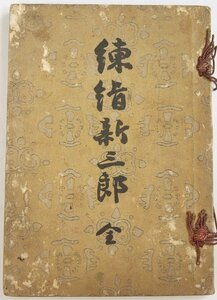 練絹新三郎 全